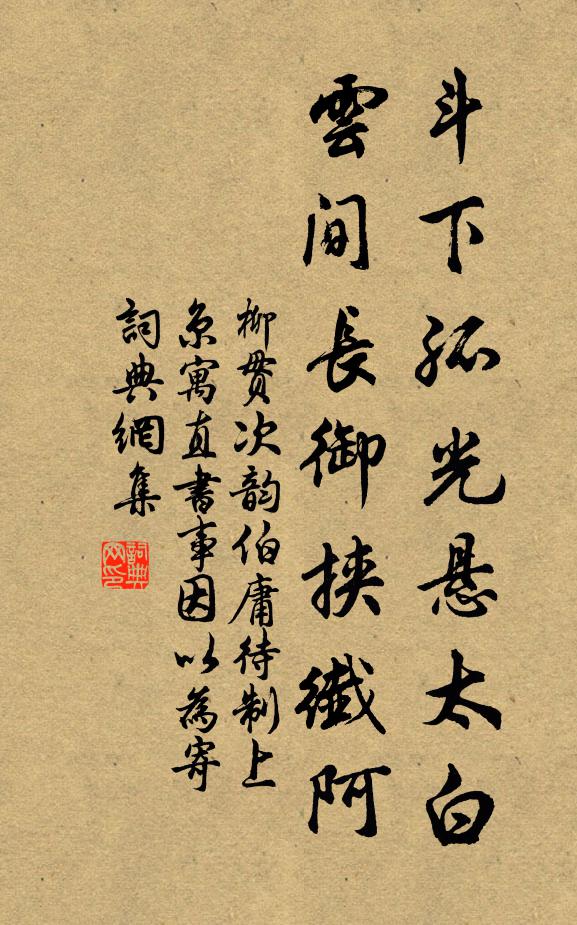 斗下孤光悬太白
雲间長御挾纖阿
柳贯次韵伯庸待制上
京寓直書事因以為寄
詞典網集
詞典
网印